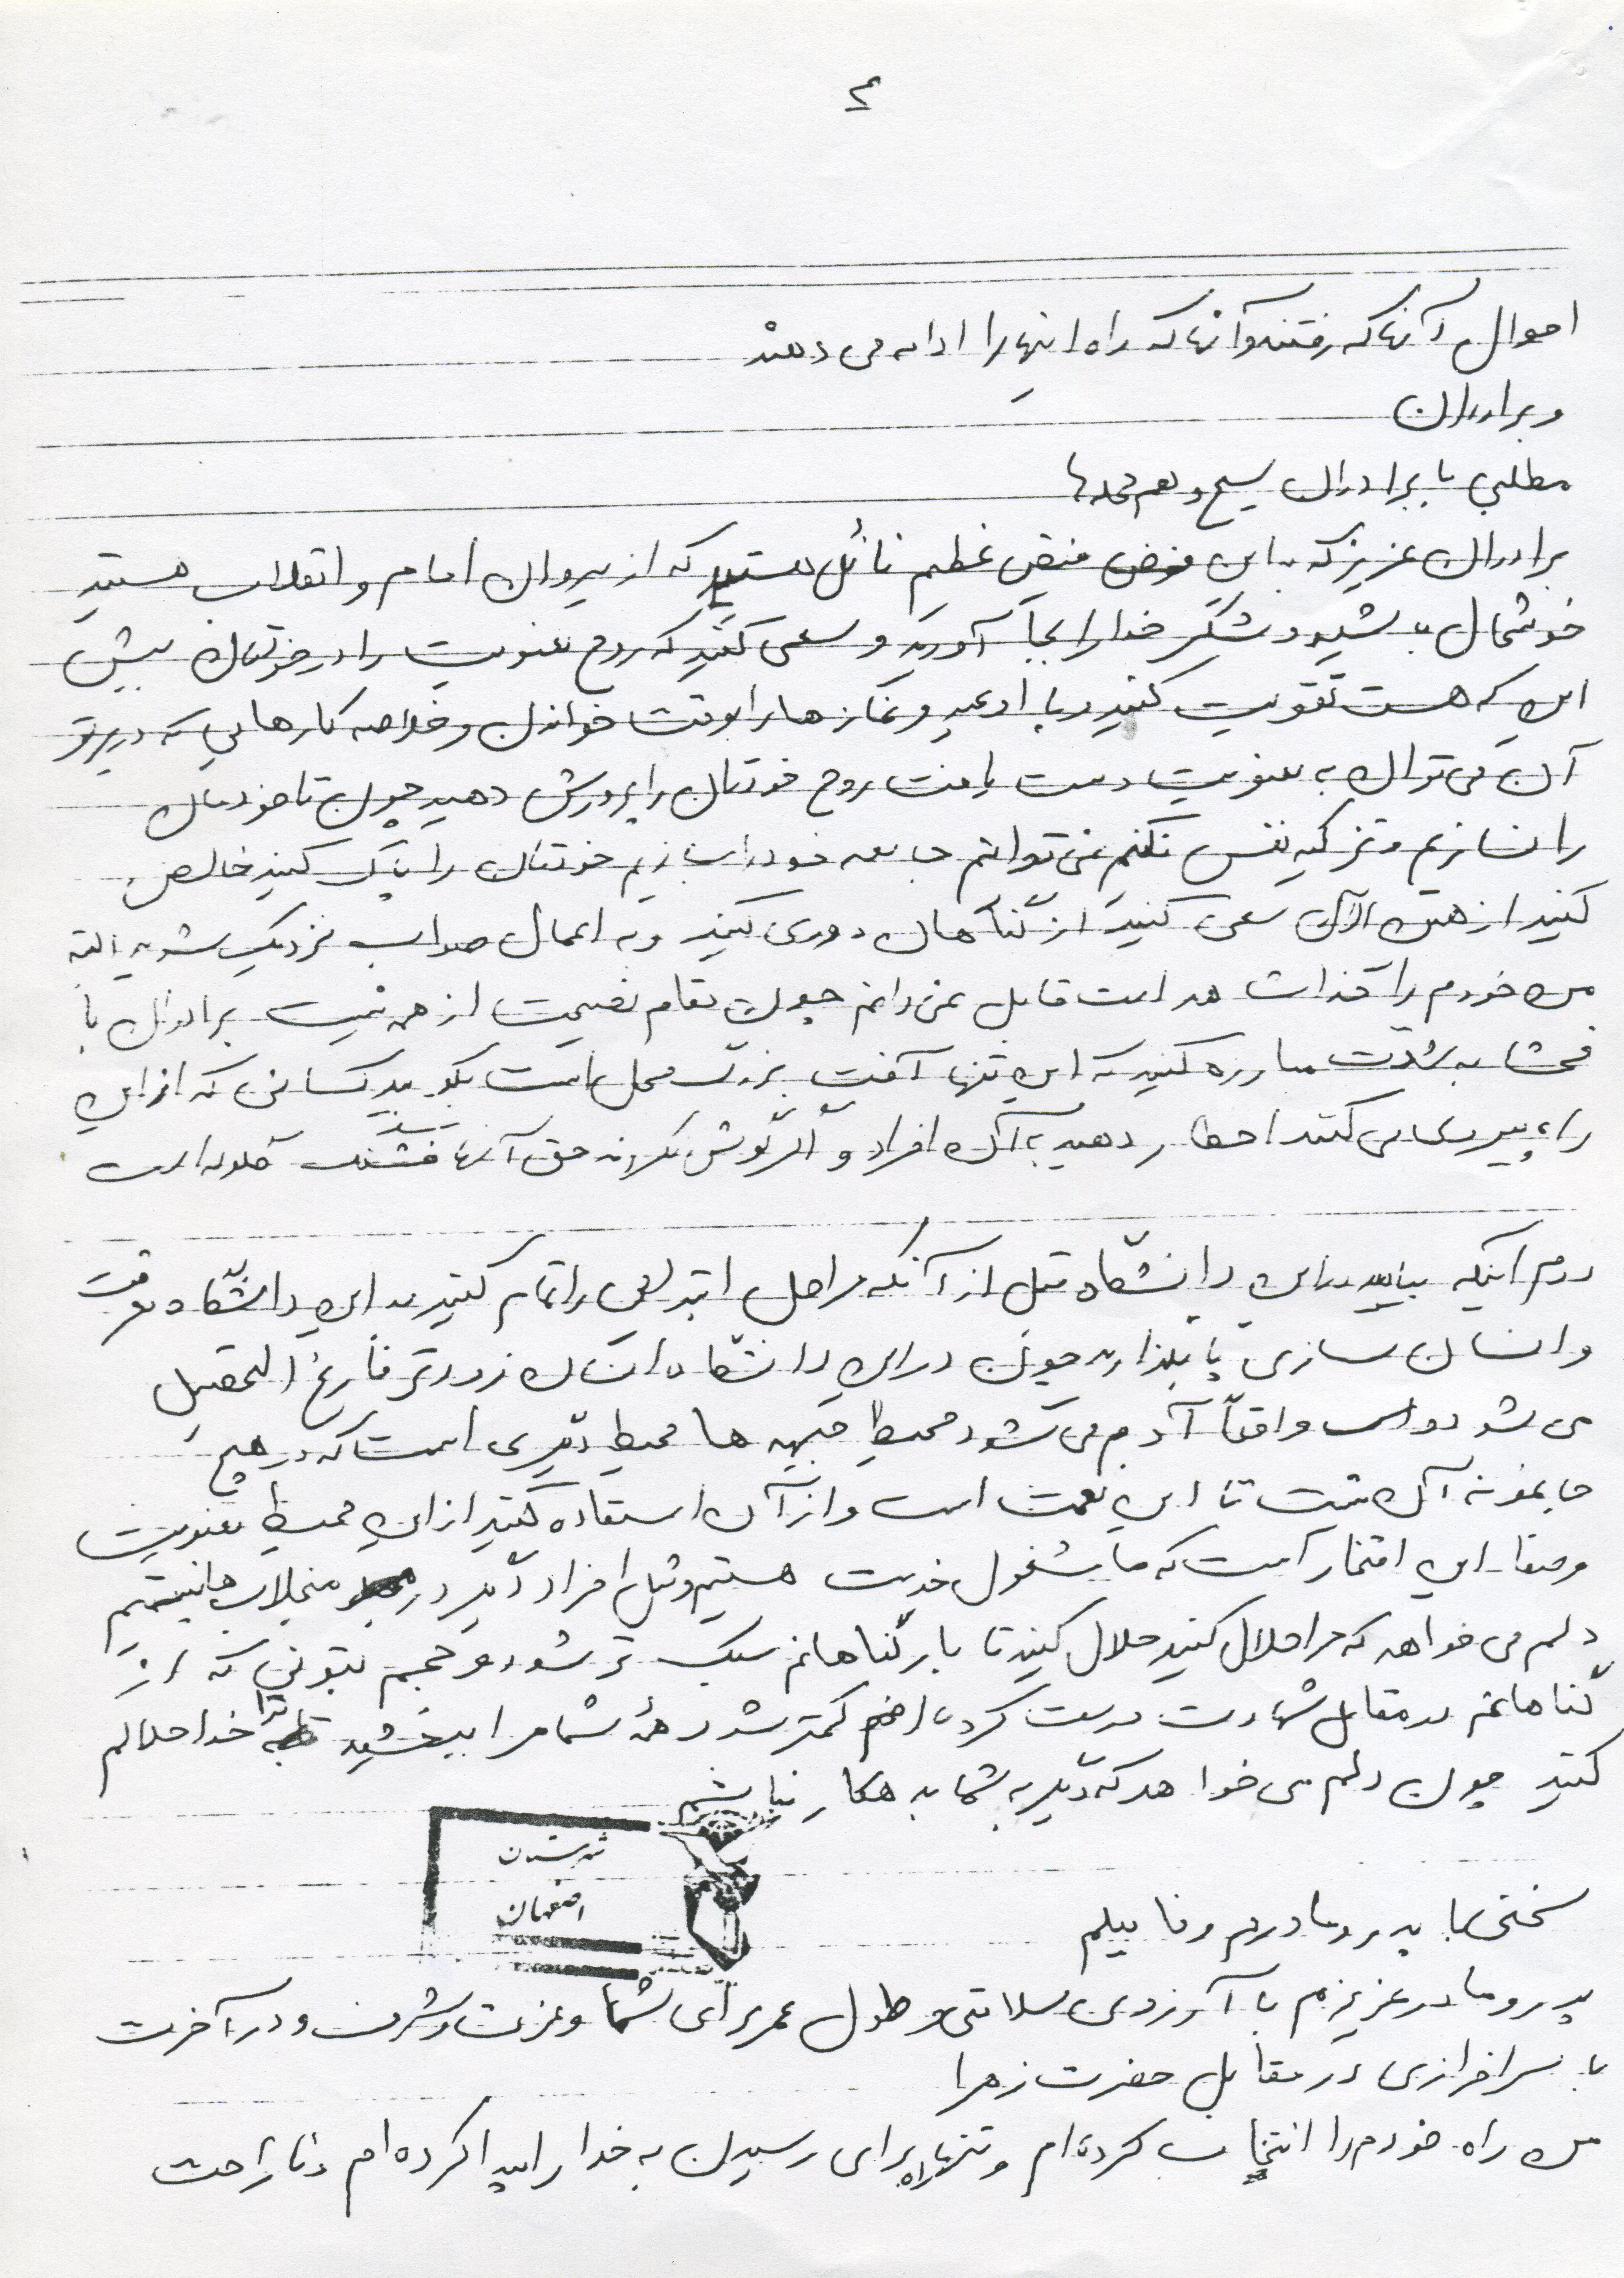 ٤
احوال آنها که رفتند و آنها که راه اینها را ادامه می دهند
و برادران
مطلبی با برادران بسیج و هم محله ها
برادران عزیز که به این فیض عظیم نائل هستید که از پیروان امام و انقلاب هستید
خوشحال باشید و شکر خدا را بجا آورید و سعی کنید که روح معنویت را در خودتان بیش
این که هست تقویت کنید و با ادعیه و نمازها را بوقت خواندن و خلاصه کارهایی که در پرتو
آن می توان به معنویت دست یافت روح خودتان را پرورش دهید چون تا خودمان
را نسازیم و تزکیه نفس نکنیم نمی توانیم جامعه خود را بسازیم خودتان را پاک کنید خالص
کنید از همین الآن سعی کنید از گناهان دوری کنید و به اعمال صواب نزدیک شوید البته
من خودم را قابل نمی دانم چون مقام نصیحت از همه نیست برادران با
فحشا به شدت مبارزه کنید که این تنها آفت بزرگ محل است بگویید کسانی که از این
راه پیروی می کنند اخطار دهید به آن افراد و اگر گوش نکردند حق آنها
دوم اینکه بیایید در این دانشگاه قبل از آنکه مراحل ابتدایی را تمام کنید به این دانشگاه معرفت
و انسان سازی پا بگذارید چون در این دانشگاه انسان زودتر فارغ التحصیل
می شود و واقعاً آدم می شود محیط جبهه ها محیط دیگری است که در هیچ
جا نمونه آن نیست تا این نعمت است و از آن استفاده کنید از این محیط معنویت
و صفا این افتخار است که ما مشغول خدمت هستیم و مثل افراد دیگر در منجلاب ها نیستیم
دلم می خواهد که مرا حلال کنید حلال کنید تا بار گناهانم سبک تر شود و حجم بتونی که از
گناهانم در مقابل شهادت درست کرده ام کمتر شود همه شما مرا ببخشید تا خدا حلالم
کنید چون دلم می خواهد که دیگر به شما بدهکار نباشم
شهرستان
اصفهان
سخنی با پدر و مادرم و فامیلم
پدر و مادر عزیزم با آرزوی سلامتی و طول عمر برای شما و عزت و شرف و در آخرت
با سرافرازی در مقابل حضرت زهرا
من راه خودم را انتخاب کرده ام و تنها راه برای رسیدن به خدا را پیدا کرده ام و ناراحت